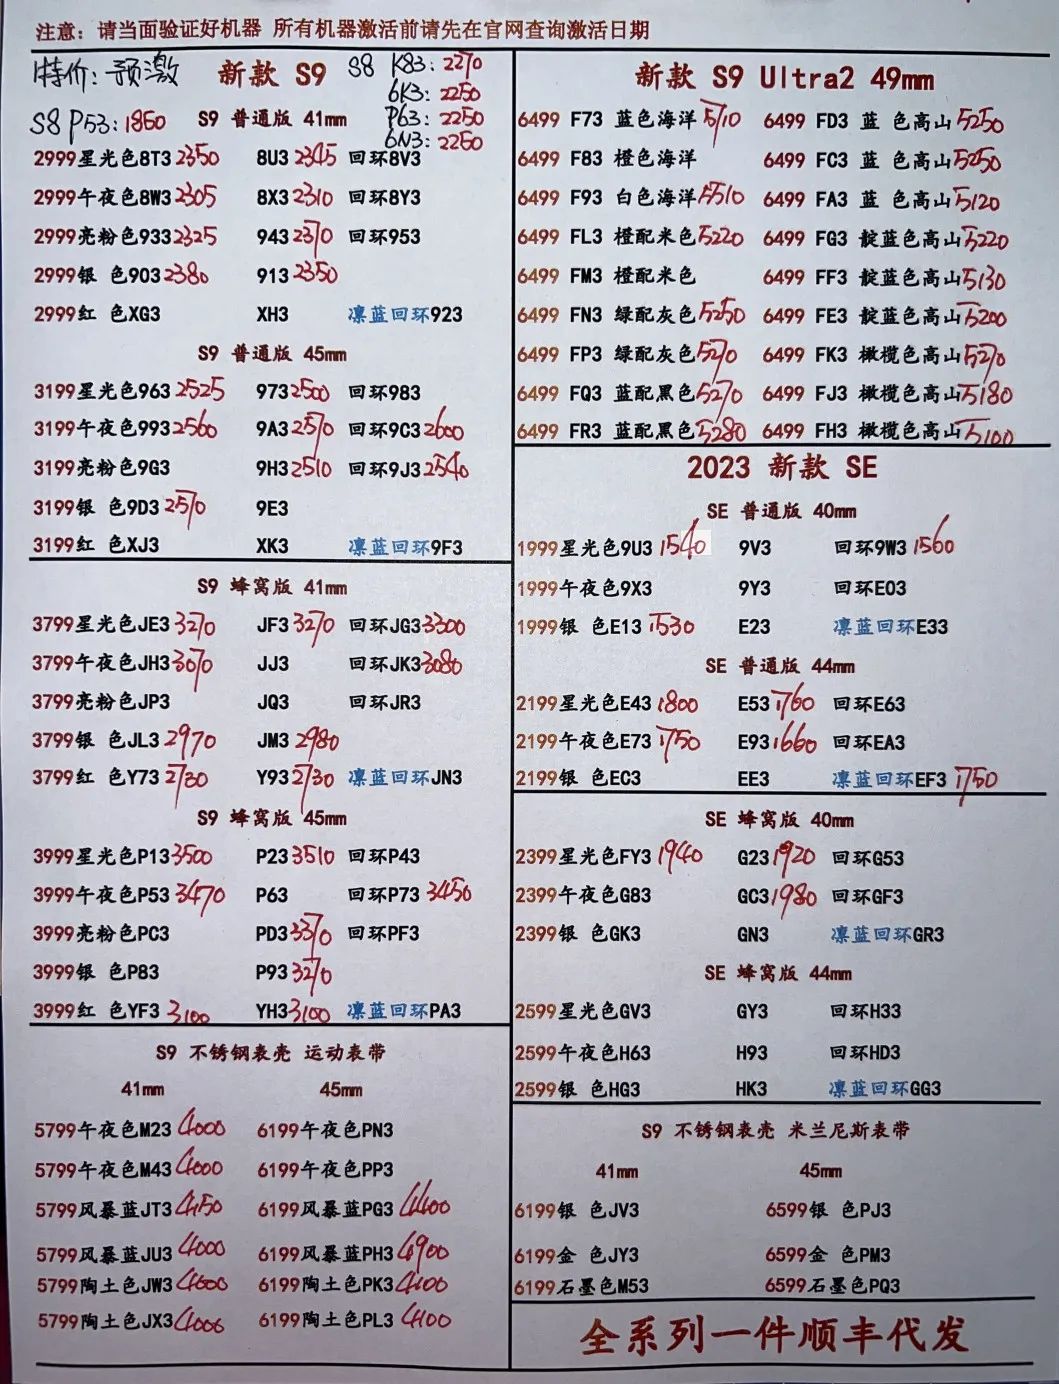 注意：请当面验证好机器 所有机器激活前请先在官网查询激活日期
特价：预激
S8 P53：1860
S8 K83：2270
6K3：2250
P63：2250
6N3：2260
新款 S9
S9 普通版 41mm
2999星光色8T3 2350 8U3 2345 回环8V3
2999午夜色8W3 2305 8X3 2310 回环8Y3
2999亮粉色933 2325 943 2370 回环953
2999银 色903 2380 913 2350
2999红 色XG3 XH3 凛蓝回环923
S9 普通版 45mm
3199星光色963 2525 973 2500 回环983
3199午夜色993 2560 9A3 2570 回环9C3 2600
3199亮粉色9G3 9H3 2510 回环9J3 2540
3199银 色9D3 2570 9E3
3199红 色XJ3 XK3 凛蓝回环9F3
S9 蜂窝版 41mm
3799星光色JE3 3270 JF3 3270 回环JG3 3300
3799午夜色JH3 3070 JJ3 回环JK3 3080
3799亮粉色JP3 JQ3 回环JR3
3799银 色JL3 2970 JM3 2980
3799红 色Y73 2730 Y93 2730 凛蓝回环JN3
S9 蜂窝版 45mm
3999星光色P13 3500 P23 3510 回环P43
3999午夜色P53 3470 P63 回环P73 3450
3999亮粉色PC3 PD3 3370 回环PF3
3999银 色P83 P93 3270
3999红 色YF3 3100 YH3 3100 凛蓝回环PA3
S9 不锈钢表壳 运动表带
41mm 45mm
5799午夜色M23 4000 6199午夜色PN3
5799午夜色M43 4000 6199午夜色PP3
5799风暴蓝JT3 4150 6199风暴蓝PG3 4400
5799风暴蓝JU3 4000 6199风暴蓝PH3 4900
5799陶土色JW3 4000 6199陶土色PK3 4100
5799陶土色JX3 4000 6199陶土色PL3 4100
新款 S9 Ultra2 49mm
6499 F73 蓝色海洋 5710 6499 FD3 蓝 色高山 5250
6499 F83 橙色海洋 6499 FC3 蓝 色高山 5250
6499 F93 白色海洋 5510 6499 FA3 蓝 色高山 5120
6499 FL3 橙配米色 5220 6499 FG3 靛蓝色高山 5220
6499 FM3 橙配米色 6499 FF3 靛蓝色高山 5130
6499 FN3 绿配灰色 5250 6499 FE3 靛蓝色高山 5200
6499 FP3 绿配灰色 5270 6499 FK3 橄榄色高山 5270
6499 FQ3 蓝配黑色 5270 6499 FJ3 橄榄色高山 5180
6499 FR3 蓝配黑色 5280 6499 FH3 橄榄色高山 5100
2023 新款 SE
SE 普通版 40mm
1999星光色9U3 1540 9V3 回环9W3 1560
1999午夜色9X3 9Y3 回环E03
1999银 色E13 1530 E23 凛蓝回环E33
SE 普通版 44mm
2199星光色E43 1800 E53 1760 回环E63
2199午夜色E73 1750 E93 1660 回环EA3
2199银 色EC3 EE3 凛蓝回环EF3 1750
SE 蜂窝版 40mm
2399星光色FY3 1940 G23 1920 回环G53
2399午夜色G83 GC3 1980 回环GF3
2399银 色GK3 GN3 凛蓝回环GR3
SE 蜂窝版 44mm
2599星光色GV3 GY3 回环H33
2599午夜色H63 H93 回环HD3
2599银 色HG3 HK3 凛蓝回环GG3
S9 不锈钢表壳 米兰尼斯表带
41mm 45mm
6199银 色JV3 6599银 色PJ3
6199金 色JY3 6599金 色PM3
6199石墨色M53 6599石墨色PQ3
全系列一件顺丰代发